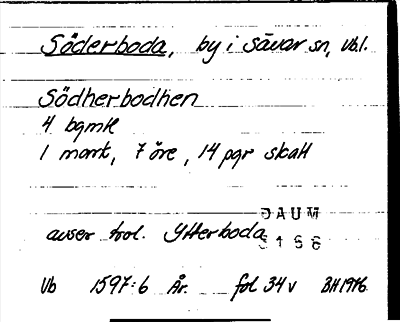 Söderboda, by i Sävar sn, Vb.l.
Södherbodhen
4 bgmk
1 mark, 7 öre, 14 pgr skatt
DAUM
avser trol. Ytterboda
5168
Vb 1597:6 År. fol 34 v BH 1946